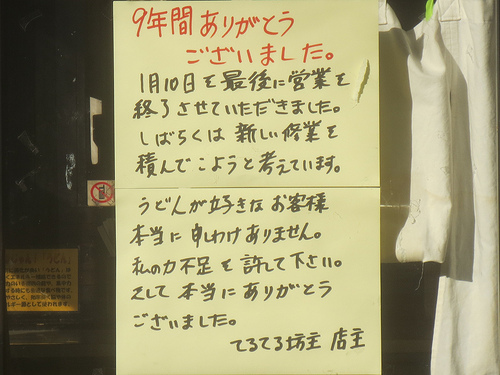 9年間ありがとう
ございました。
1月10日を最後に営業を
終了させていただきました。
しばらくは新しい修業を
積んでこようと考えています。
うどんが好きなお客様
本当に申しわけありません。
私の力不足を許して下さい。
そして本当にありがとう
ございました。
てるてる坊主 店主